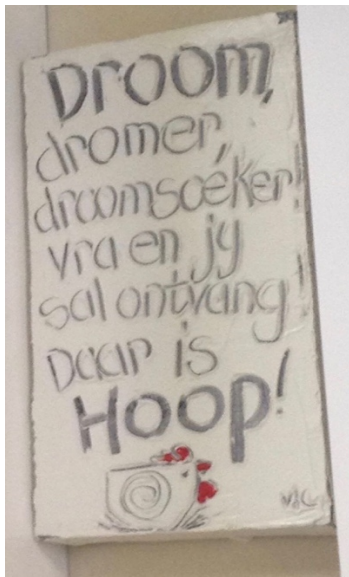 Droom,
dromer,
droomsoeker!
vra en jy
sal ontvang!
Daar is
Hoop!